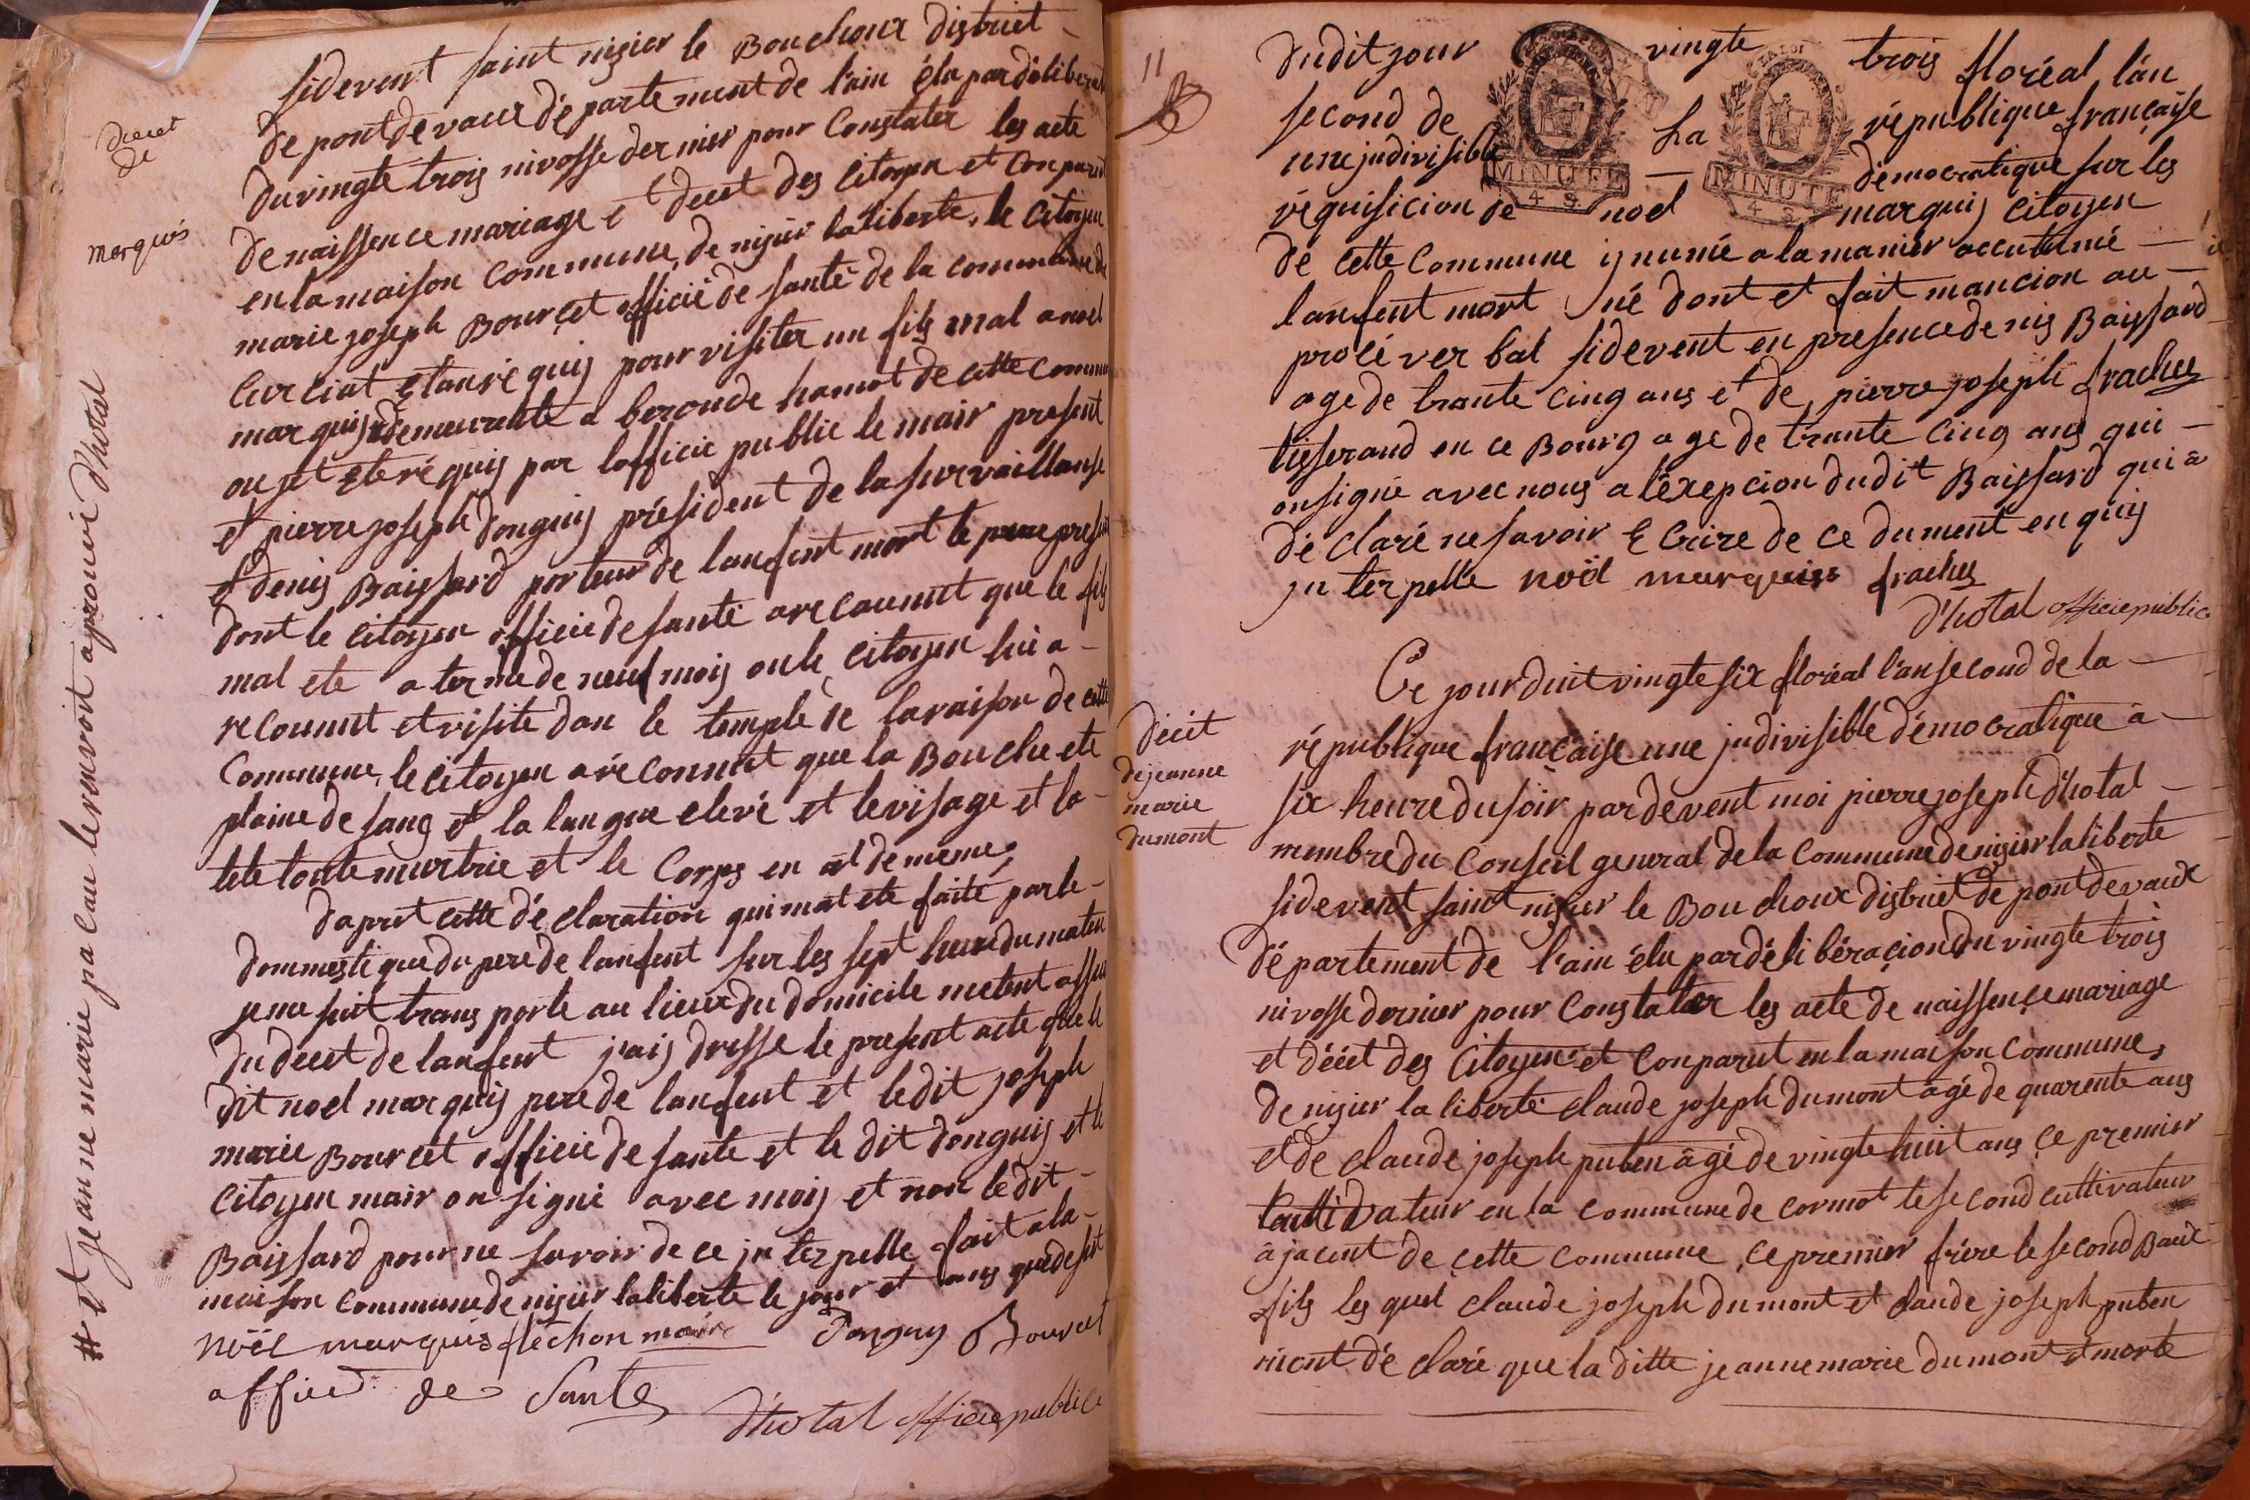 sidevent saint nizier le Bouchoux district
de pont de vaux département de l'ain élu par délibera
du vingte trois nivosse dernier pour Constater les acte
de naissence mariage et decet des Citoyen et Conparut
en la maison Commune de nizier la liberte, le Citoyen
marie joseph Bourcet officié de santé de la commune de
Curciat Etanré quis pour visiter un fils mal a noel
marquis demeurente a beronde hamot de cette commu
ou jet Eteré quis par lofficié public le mair present
et pierre joseph donguis président de la survaillanse
et denis Baissard porteur de lanfent mort le pere present
dont le Citoyen officié de santé are counut que le fils
mal ete a terme de neuf mois ou le Citoyen lui a
recounut et visite dan le temple de la raison de cette
Commune, le Citoyen aré connut que la Bouche ete
plaine de sang et la langue elevé et le visage et la
tete toute murtrie et le Corps en at de meme,
dapret cette dé claration qui mat ete faite par le
dommestique du pere de lanfent sur les sept heure du maten
je me suit trans porte au lieux du domicile metent assu
du decet de lanfent j'ais dresse le present acte que le
dit noel marquis pere de lanfent et ledit joseph
marie Bourcet officié de sante et le dit donguis et le
Citoyen mair on signé avec mois et non le dit
Baissard pour ne savoir de ce in terpelle fait a la
maison commune de nizier la liberte le jour et ans que desut
noël marquis fléchon mair Donguy Bourcet
afficié de Santé
d'hotal officié public
decet
de
marquis
# et jeanne marie pa lau le renvoit aprouvé d'hotal
11
dudit jour vingte trois floréal l'an
second de La république française
une judivisible démocratique sur les
réquisicion de noel marquis Citoyen
MINUTE
4 S
MINUTE
4 S
de cette Commune ynumé a la manier accutumé
lanfent mort né dont et fait mancion au
procé ver bal sidevent en presence denis Baissard
age de trante cinq ans et de pierre joseph frachet
tisserand en ce Bourg age de trante cinq ans qui
onsigné avec nous a l'éxepcion dudit Baissard qui à
dé claré ne savoir Ecrire de ce dument en quis
in terpellé noël marquis frachet
d'hotal officié public
Ce jourduit vingte six floréal l'an second de la
république française une judivisible démocratique à
six heure du soir par devent moi pierre joseph d'hotal
membre du Conseil general de la Commune de nizier la liberte
sidevent saint nizier le Bouchoux district de pont de vaux
département de l'ain élu par délibéraçion du vingte trois
nivosse dernier pour Constater les acte de naissençe mariage
et décét des Citoyen et Conparut en la maison Commune,
de nizier la liberté claude joseph dumont âgé de quarente ans
et de claude joseph puben âgé de vingte huit ans ce premier
cultivateur en la Commune de cormot le second cultivateur
à jacent de cette Commune, ce premier frére le second Baux
fils les quel claude joseph dumont et claude joseph puben
mont dé claré que la ditte jeanne marie dumont et morte
décét
de jeanne
marie
dumont